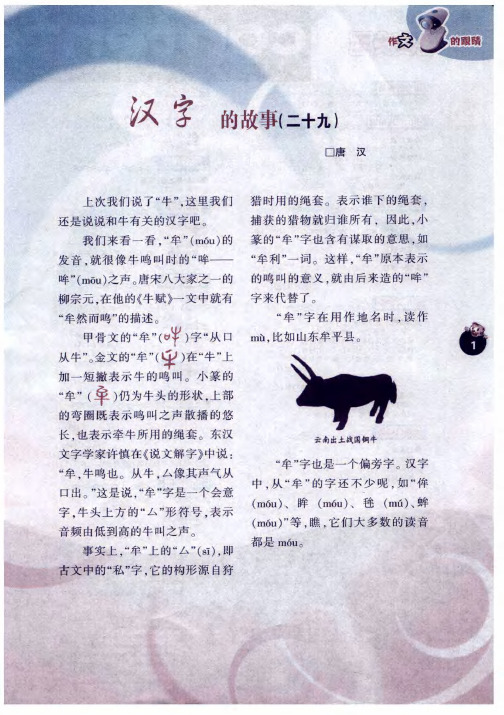 作文的眼睛
汉字的故事(二十九)
□唐 汉
上次我们说了“牛”,这里我们
还是说说和牛有关的汉字吧。
我们来看一看,“牟”(móu)的
发音,就很像牛鸣叫时的“哞——
哞”(mōu)之声。唐宋八大家之一的
柳宗元,在他的《牛赋》一文中就有
“牟然而鸣”的描述。
甲骨文的“牟”( )字“从口
从牛”。金文的“牟”( )在“牛”上
加一短撇表示牛的鸣叫。小篆的
“牟”( )仍为牛头的形状,上部
的弯圈既表示鸣叫之声散播的悠
长,也表示牵牛所用的绳套。东汉
文字学家许慎在《说文解字》中说:
“牟,牛鸣也。从牛,厶像其声气从
口出。”这是说,“牟”字是一个会意
字,牛头上方的“厶”形符号,表示
音频由低到高的牛叫之声。
事实上,“牟”上的“厶”(sī),即
古文中的“私”字,它的构形源自狩
猎时用的绳套。表示谁下的绳套,
捕获的猎物就归谁所有、因此,小
篆的“牟”字也含有谋取的意思,如
“牟利”一词。这样,“牟”原本表示
的鸣叫的意义,就由后来造的“哞”
字来代替了。
“牟”字在用作地名时,读作
mù,比如山东牟平县。
云南出土战国铜牛
“牟”字也是一个偏旁字。汉字
中,从“牟”的字还不少呢,如“侔
(móu)、眸 (móu)、 (mú)、蛑
(móu)”等,瞧,它们大多数的读音
都是 móu。
1